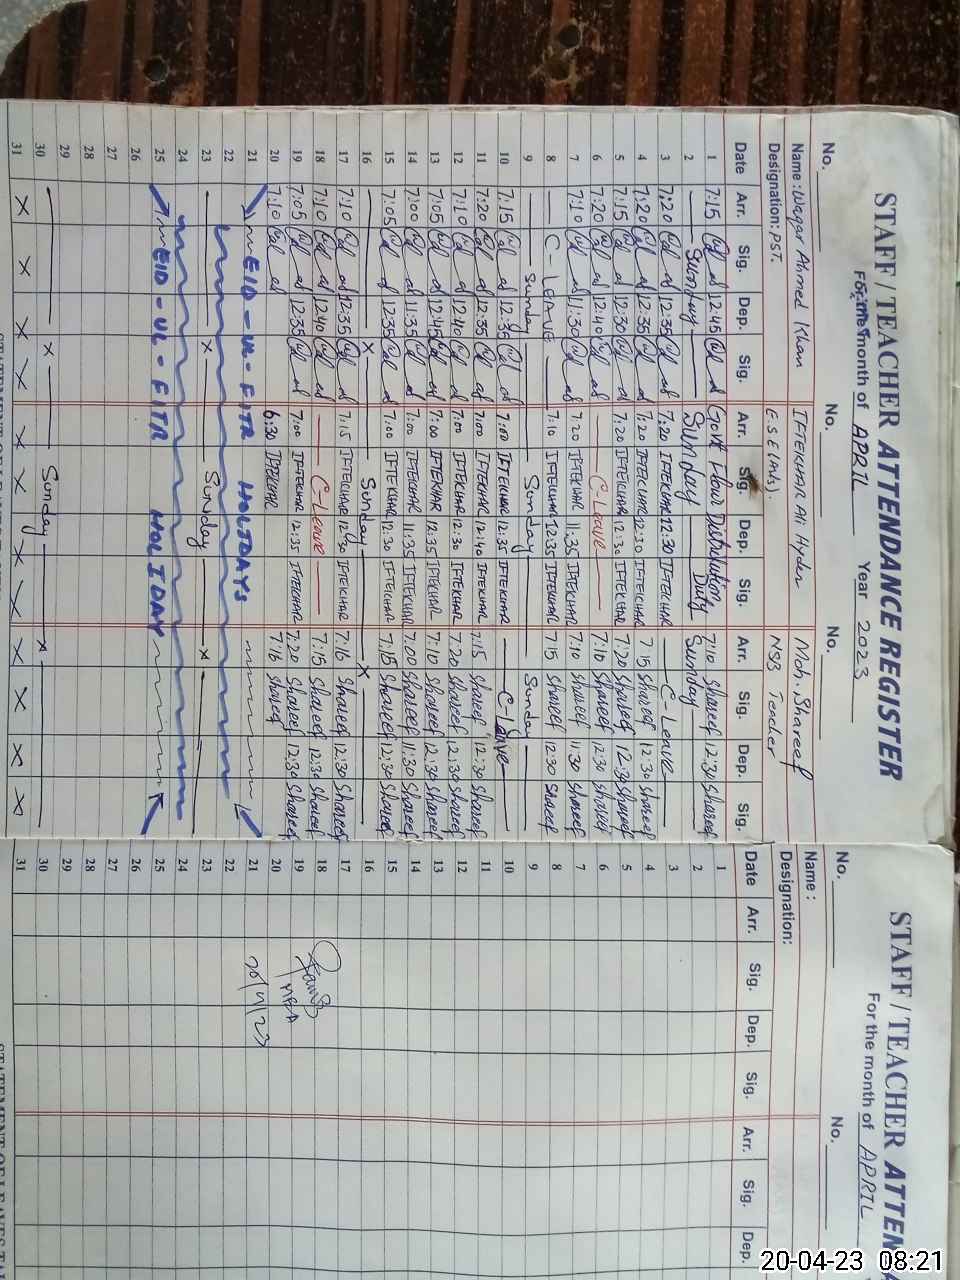 STAFF / TEACHER ATTENDANCE REGISTER
For the month of APRIL Year 2023
No. No. No.
Name: Waqar Ahmed Khan IFTEKHAR Ali Hyder Moh. Shareef
Designation: PST. E.S.E (Arts). NSB Teacher
Date Arr. Sig. Dep. Sig. Arr. Sig. Dep. Sig. Arr. Sig. Dep. Sig.
1 7:15 12:45 Govt Flour Distribution 7:10 Shareef 12:30 Shareef
2 Sunday Sunday Duty Sunday
3 7:20 12:35 7:20 IFTEKHAR 12:30 IFTEKHAR C-Leave
4 7:20 12:35 7:20 IFTEKHAR 12:30 IFTEKHAR 7:15 Shareef 12:30 Shareef
5 7:15 12:30 7:20 IFTEKHAR 12:30 IFTEKHAR 7:20 Shareef 12:30 Shareef
6 7:20 12:40 C-Leave 7:10 Shareef 12:30 Shareef
7 7:10 11:30 7:20 IFTEKHAR 11:35 IFTEKHAR 7:10 Shareef 11:30 Shareef
8 C-LEAVE 7:10 IFTEKHAR 12:35 IFTEKHAR 7:15 Shareef 12:30 Shareef
9 Sunday Sunday Sunday
10 7:15 12:35 7:00 IFTEKHAR 12:35 IFTEKHAR C-Leave
11 7:20 12:35 7:00 IFTEKHAR 12:40 IFTEKHAR 7:15 Shareef 12:30 Shareef
12 7:10 12:40 7:00 IFTEKHAR 12:30 IFTEKHAR 7:20 Shareef 12:30 Shareef
13 7:05 12:45 7:00 IFTEKHAR 12:35 IFTEKHAR 7:10 Shareef 12:30 Shareef
14 7:00 11:35 7:00 IFTEKHAR 11:35 IFTEKHAR 7:00 Shareef 11:30 Shareef
15 7:05 12:35 7:00 IFTEKHAR 12:30 IFTEKHAR 7:15 Shareef 12:30 Shareef
16 x Sunday x
17 7:10 12:35 7:15 IFTEKHAR 12:30 IFTEKHAR 7:16 Shareef 12:30 Shareef
18 7:10 12:40 C-Leave 7:15 Shareef 12:30 Shareef
19 7:05 12:35 7:00 IFTEKHAR 12:35 IFTEKHAR 7:20 Shareef 12:30 Shareef
20 7:10 6:30 IFTEKHAR 7:16 Shareef
21 EID-UL-FITR HOLIDAYS
22
23 x Sunday x
24
25 EID-UL-FITR HOLIDAY
26
27
28
29
30 x Sunday x
31 x x x x x x x x x x x x
STAFF / TEACHER ATTEN
For the month of APRIL
No. No.
Name:
Designation:
Date Arr. Sig. Dep. Sig. Arr. Sig. Dep.
1
2
3
4
5
6
7
8
9
10
11
12
13
14
15
16
17
18
19
20
21
22
23
24
25
26
27
28
29
30
31
20/4/23
20-04-23 08:21